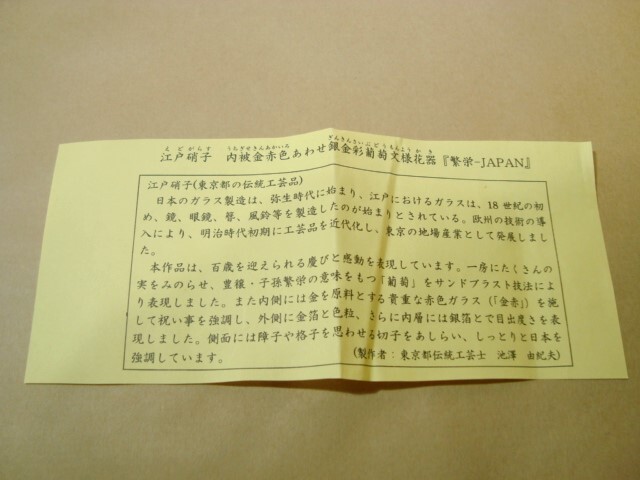 えどがらす　うちぎせきんあかいろ　ぎんきんさいぶどうもんようかき
江戸硝子　内被金赤色あわせ銀金彩葡萄文様花器『繁栄-JAPAN』
江戸硝子(東京都の伝統工芸品)
日本のガラス製造は、弥生時代に始まり、江戸におけるガラスは、18世紀の初
め、鏡、眼鏡、簪、風鈴等を製造したのが始まりとされている。欧州の技術の導
入により、明治時代初期に工芸品を近代化し、東京の地場産業として発展しまし
た。
本作品は、百歳を迎えられる慶びと感動を表現しています。一房にたくさんの
実をみのらせ、豊穣・子孫繁栄の意味をもつ「葡萄」をサンドブラスト技法によ
り表現しました。また内側には金を原料とする貴重な赤色ガラス(「金赤」)を施
して祝い事を強調し、外側に金箔と色粒、さらに内層には銀箔とで目出度さを表
現しました。側面には障子や格子を思わせる切子をあしらい、しっとりと日本を
強調しています。　(製作者:東京都伝統工芸士　池澤　由紀夫)